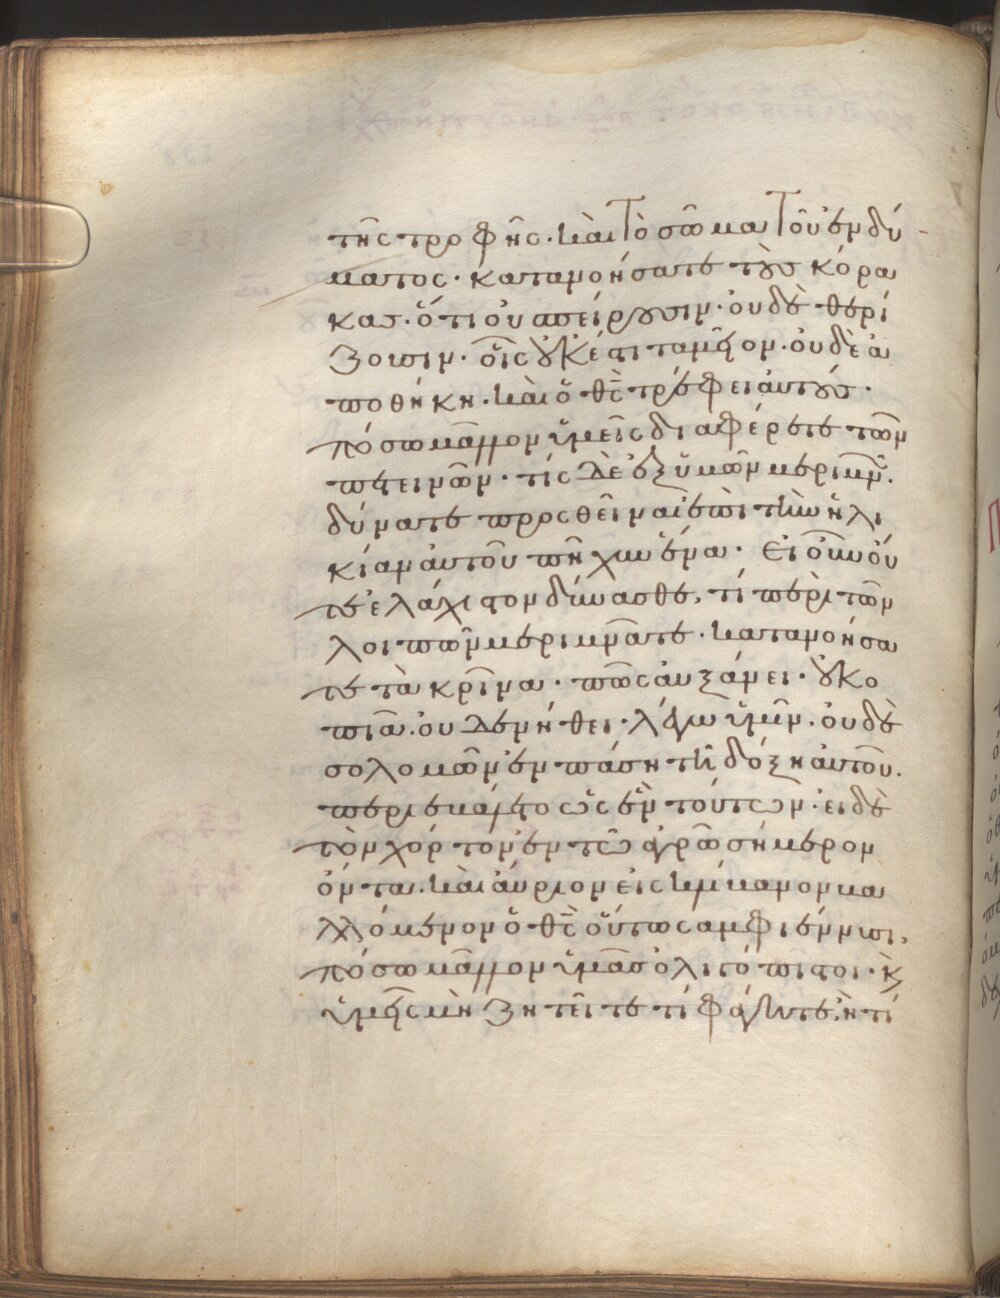 τῆς τροφῆς· καὶ τὸ σῶμα τοῦ ἐνδύ
ματος· κατανοήσατε τοὺς κόρα
κας· ὅτι οὐ σπείρουσιν· οὐδὲ θερί
ζουσιν· οἷς οὐκ ἔστι ταμεῖον· οὐδὲ ἀ
ποθήκη· καὶ ὁ θς τρέφει αὐτούς·
πόσω μᾶλλον ὑμεῖς διαφέρετε τῶν
πετεινῶν· τίς δὲ ἐξ ὑμῶν μεριμνῶν
δύναται προσθεῖναι ἐπὶ τὴν ἡλι
κίαν αὐτοῦ πῆχυν ἕνα· Εἰ οὖν οὔ
τε ἐλάχιστον δύνασθε, τί περὶ τῶν
λοιπῶν μεριμνᾶτε· κατανοήσα
τε τὰ κρίνα· πῶς αὐξάνει· οὐ κο
πιᾶ· οὐδὲ νήθει· λέγω ὑμῖν· οὐδὲ
σολομῶν ἐν πάση τῆ δόξη αὐτοῦ·
περιεβάλετο ὡς ἓν τούτων· εἰ δὲ
τὸν χόρτον ἐν τῶ ἀγρῶ σήμερον
ὄντα· καὶ αὔριον εἰς κλίβανον βα
λλόμενον ὁ θς οὕτως ἀμφιέννυσι,
πόσω μᾶλλον ὑμᾶς ὀλιγόπιστοι· κ
ὑμεῖς μὴ ζητεῖτε τί φάγητε· ἢ τί